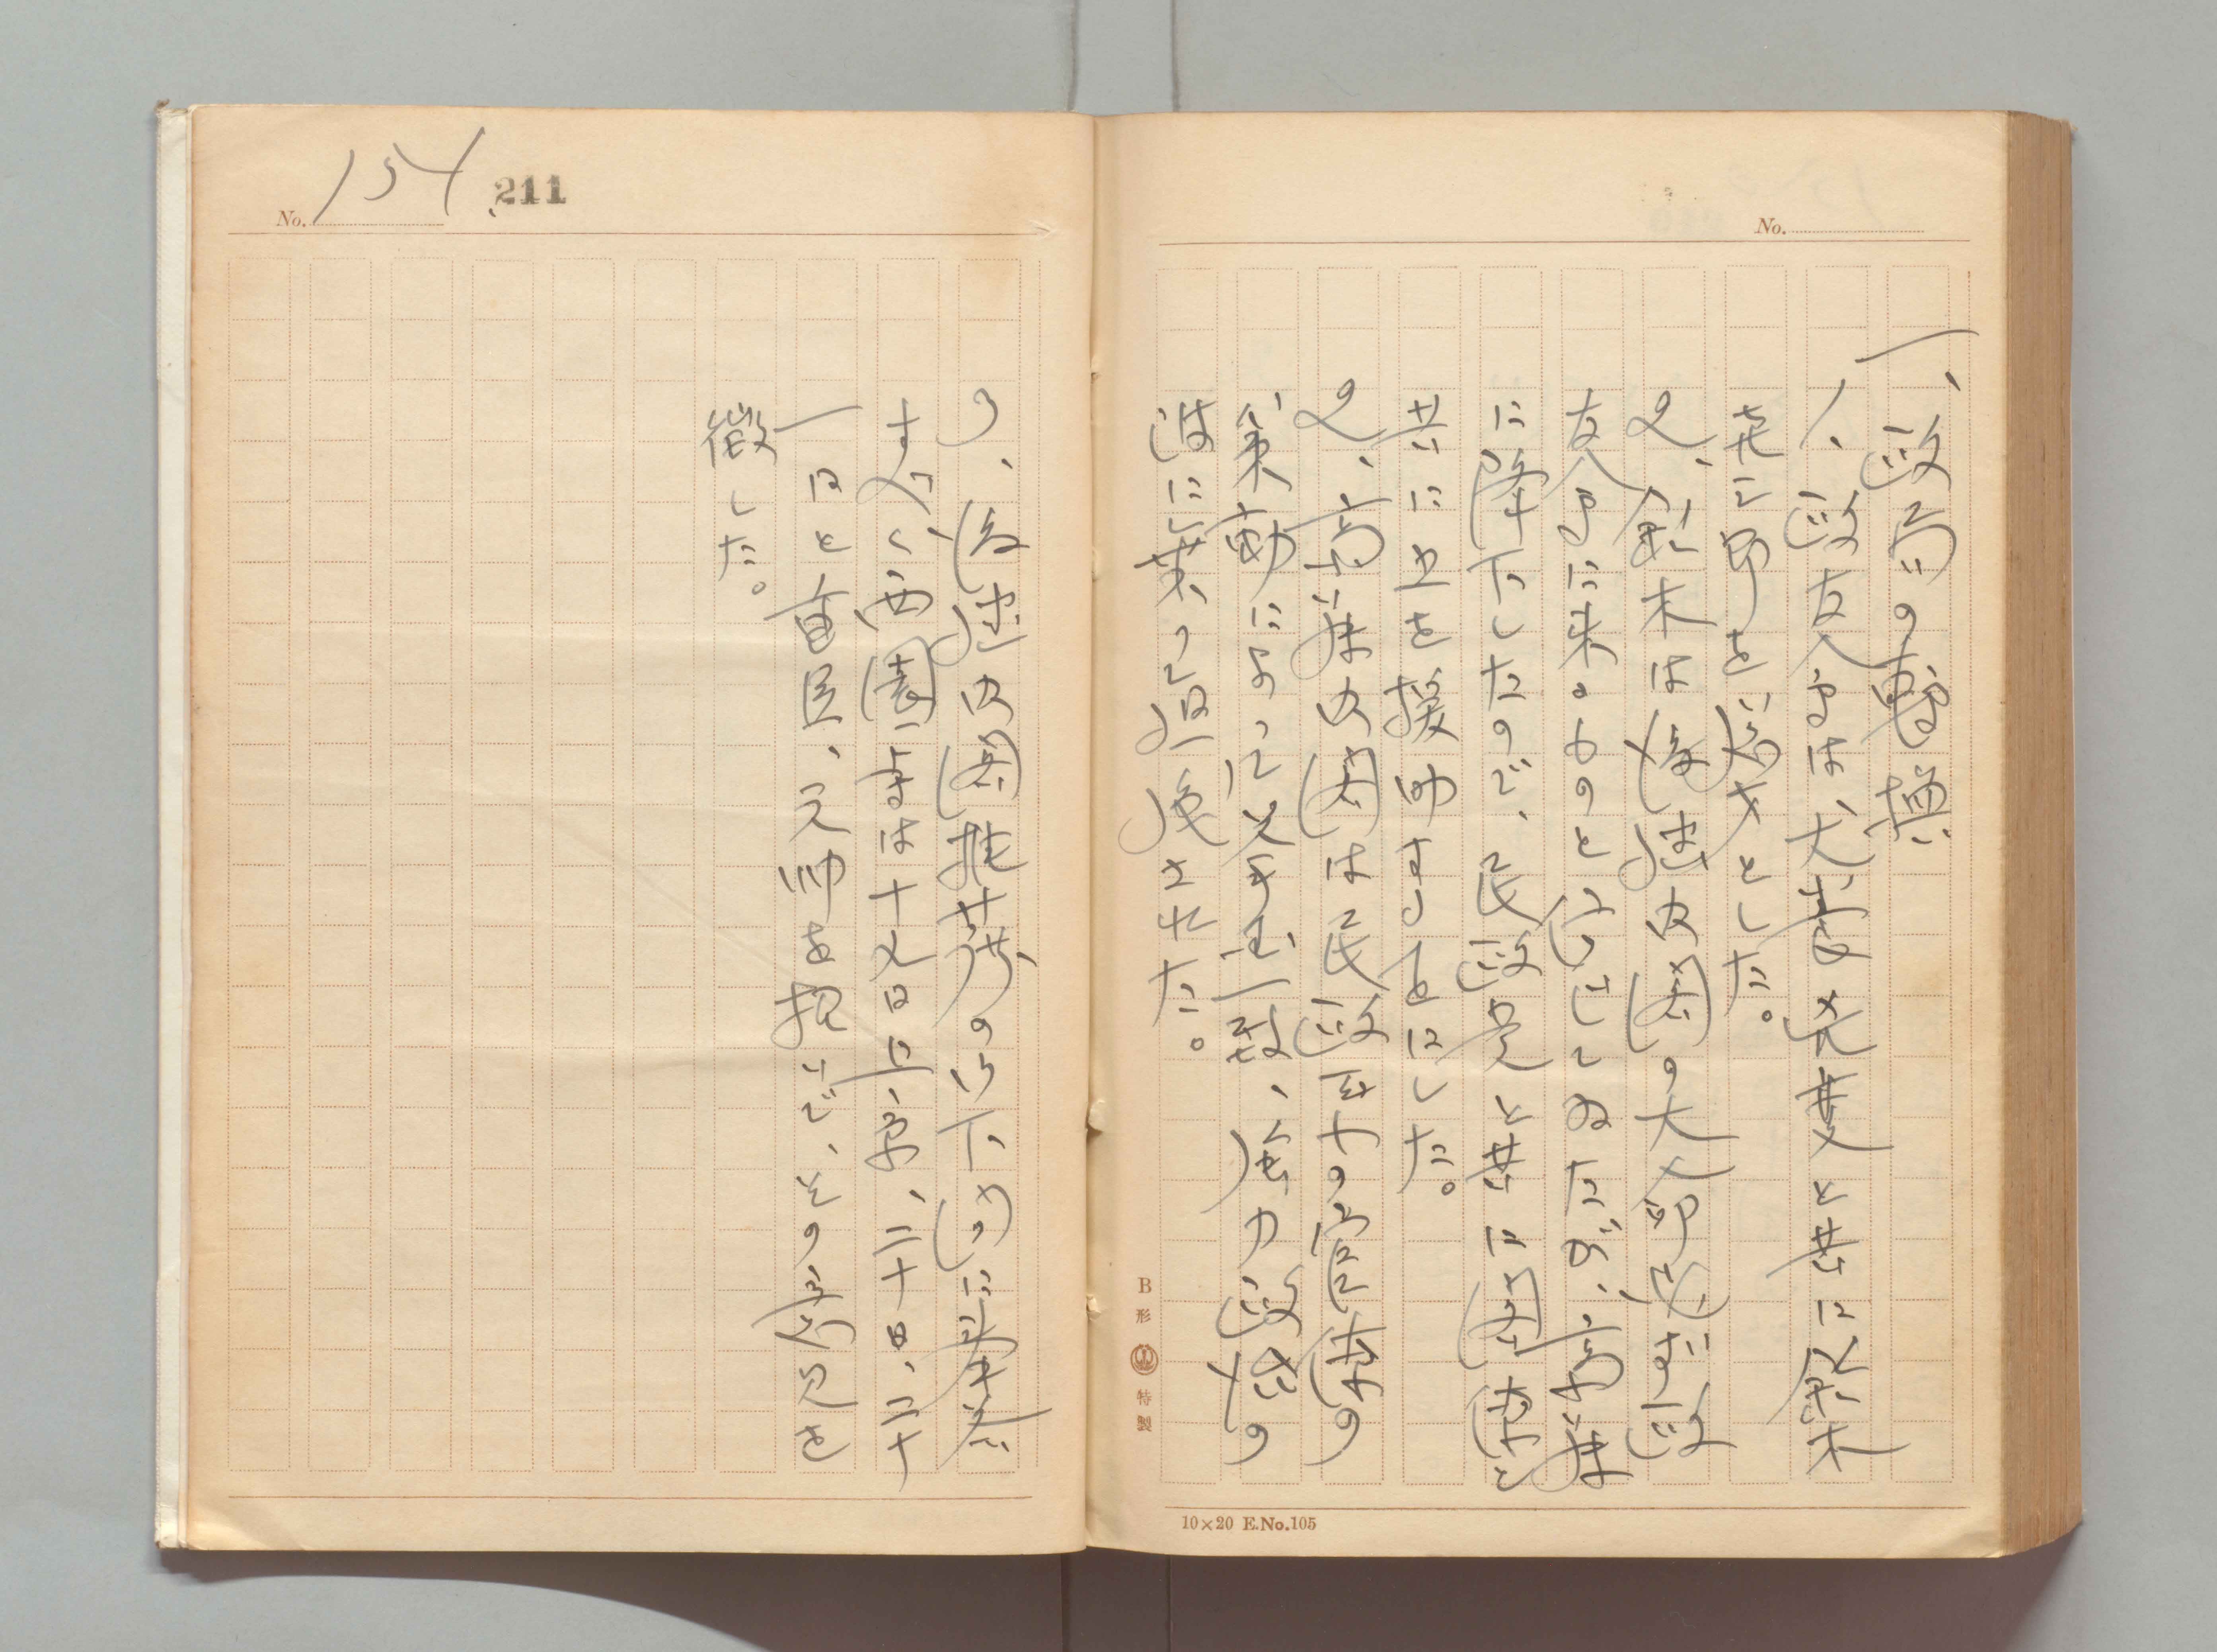 No.
一、政局の転換
1、政友会は、犬養の兇変と共に鈴木
喜三郎を総裁とした。
2、鈴木は後継内閣の大命は当然政
友会に来るものと信じてゐたが、斎藤
に降下したので、民政党と共に閣僚を
共に之を援助することにした。
2、斎藤内閣は民政
策動によって挙国一致、強力政治の
波に乗って させた。
B形 特製
10×20 E.No.105
No. 154 211
3、後継内閣推薦の御下問に奉答
すべく西園寺は十九日上京、二十日、二十
一日と重臣、元帥を招いで、その意見を
徴した。